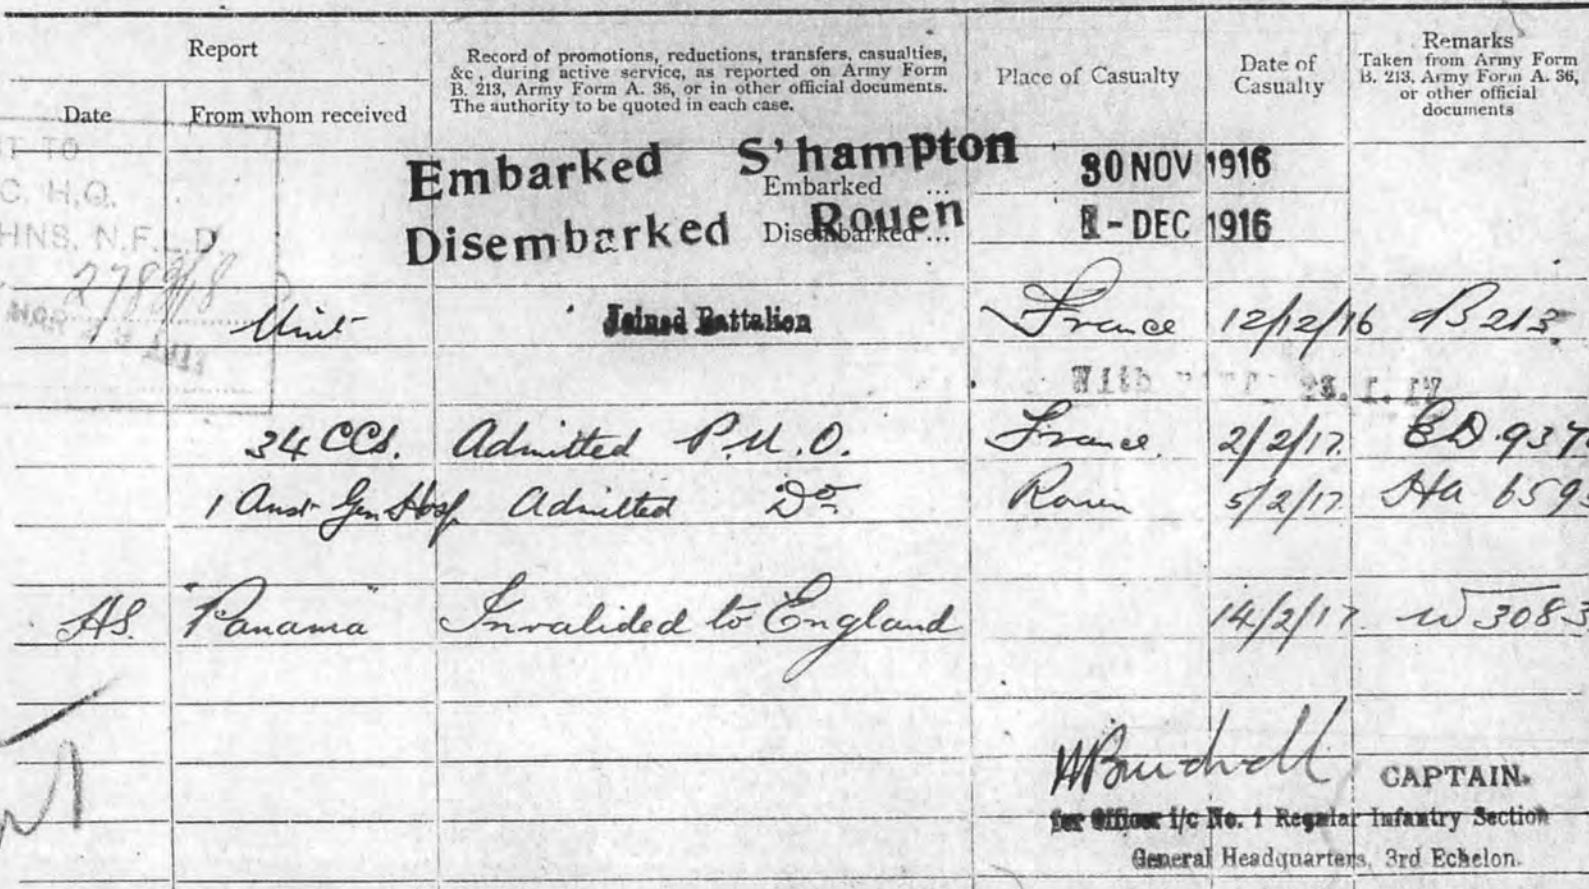 Report
Date
From whom received
Record of promotions, reductions, transfers, casualties,
&c., during active service, as reported on Army Form
B. 213, Army Form A. 36, or in other official documents.
The authority to be quoted in each case.
Place of Casualty
Date of
Casualty
Remarks
Taken from Army Form
B. 213, Army Form A. 36,
or other official
documents
TO
C. H.Q.
HNS. N.F.L.D.
Embarked S'hampton
Embarked ... 30 NOV 1916
Disembarked Rouen
Disembarked ... 1-DEC 1916
Unit Joined Battalion France 12/12/16 B213
With 23. 1. 17
34 CCS. Admitted P.U.O. France. 2/2/17. 937
1 Aust Gen Hosp Admitted Do Rouen 5/2/17 HA 6595
HS. "Panama" Invalided to England 14/2/17. W 3083
CAPTAIN.
for Officer i/c No. 1 Regular Infantry Section
General Headquarters, 3rd Echelon.